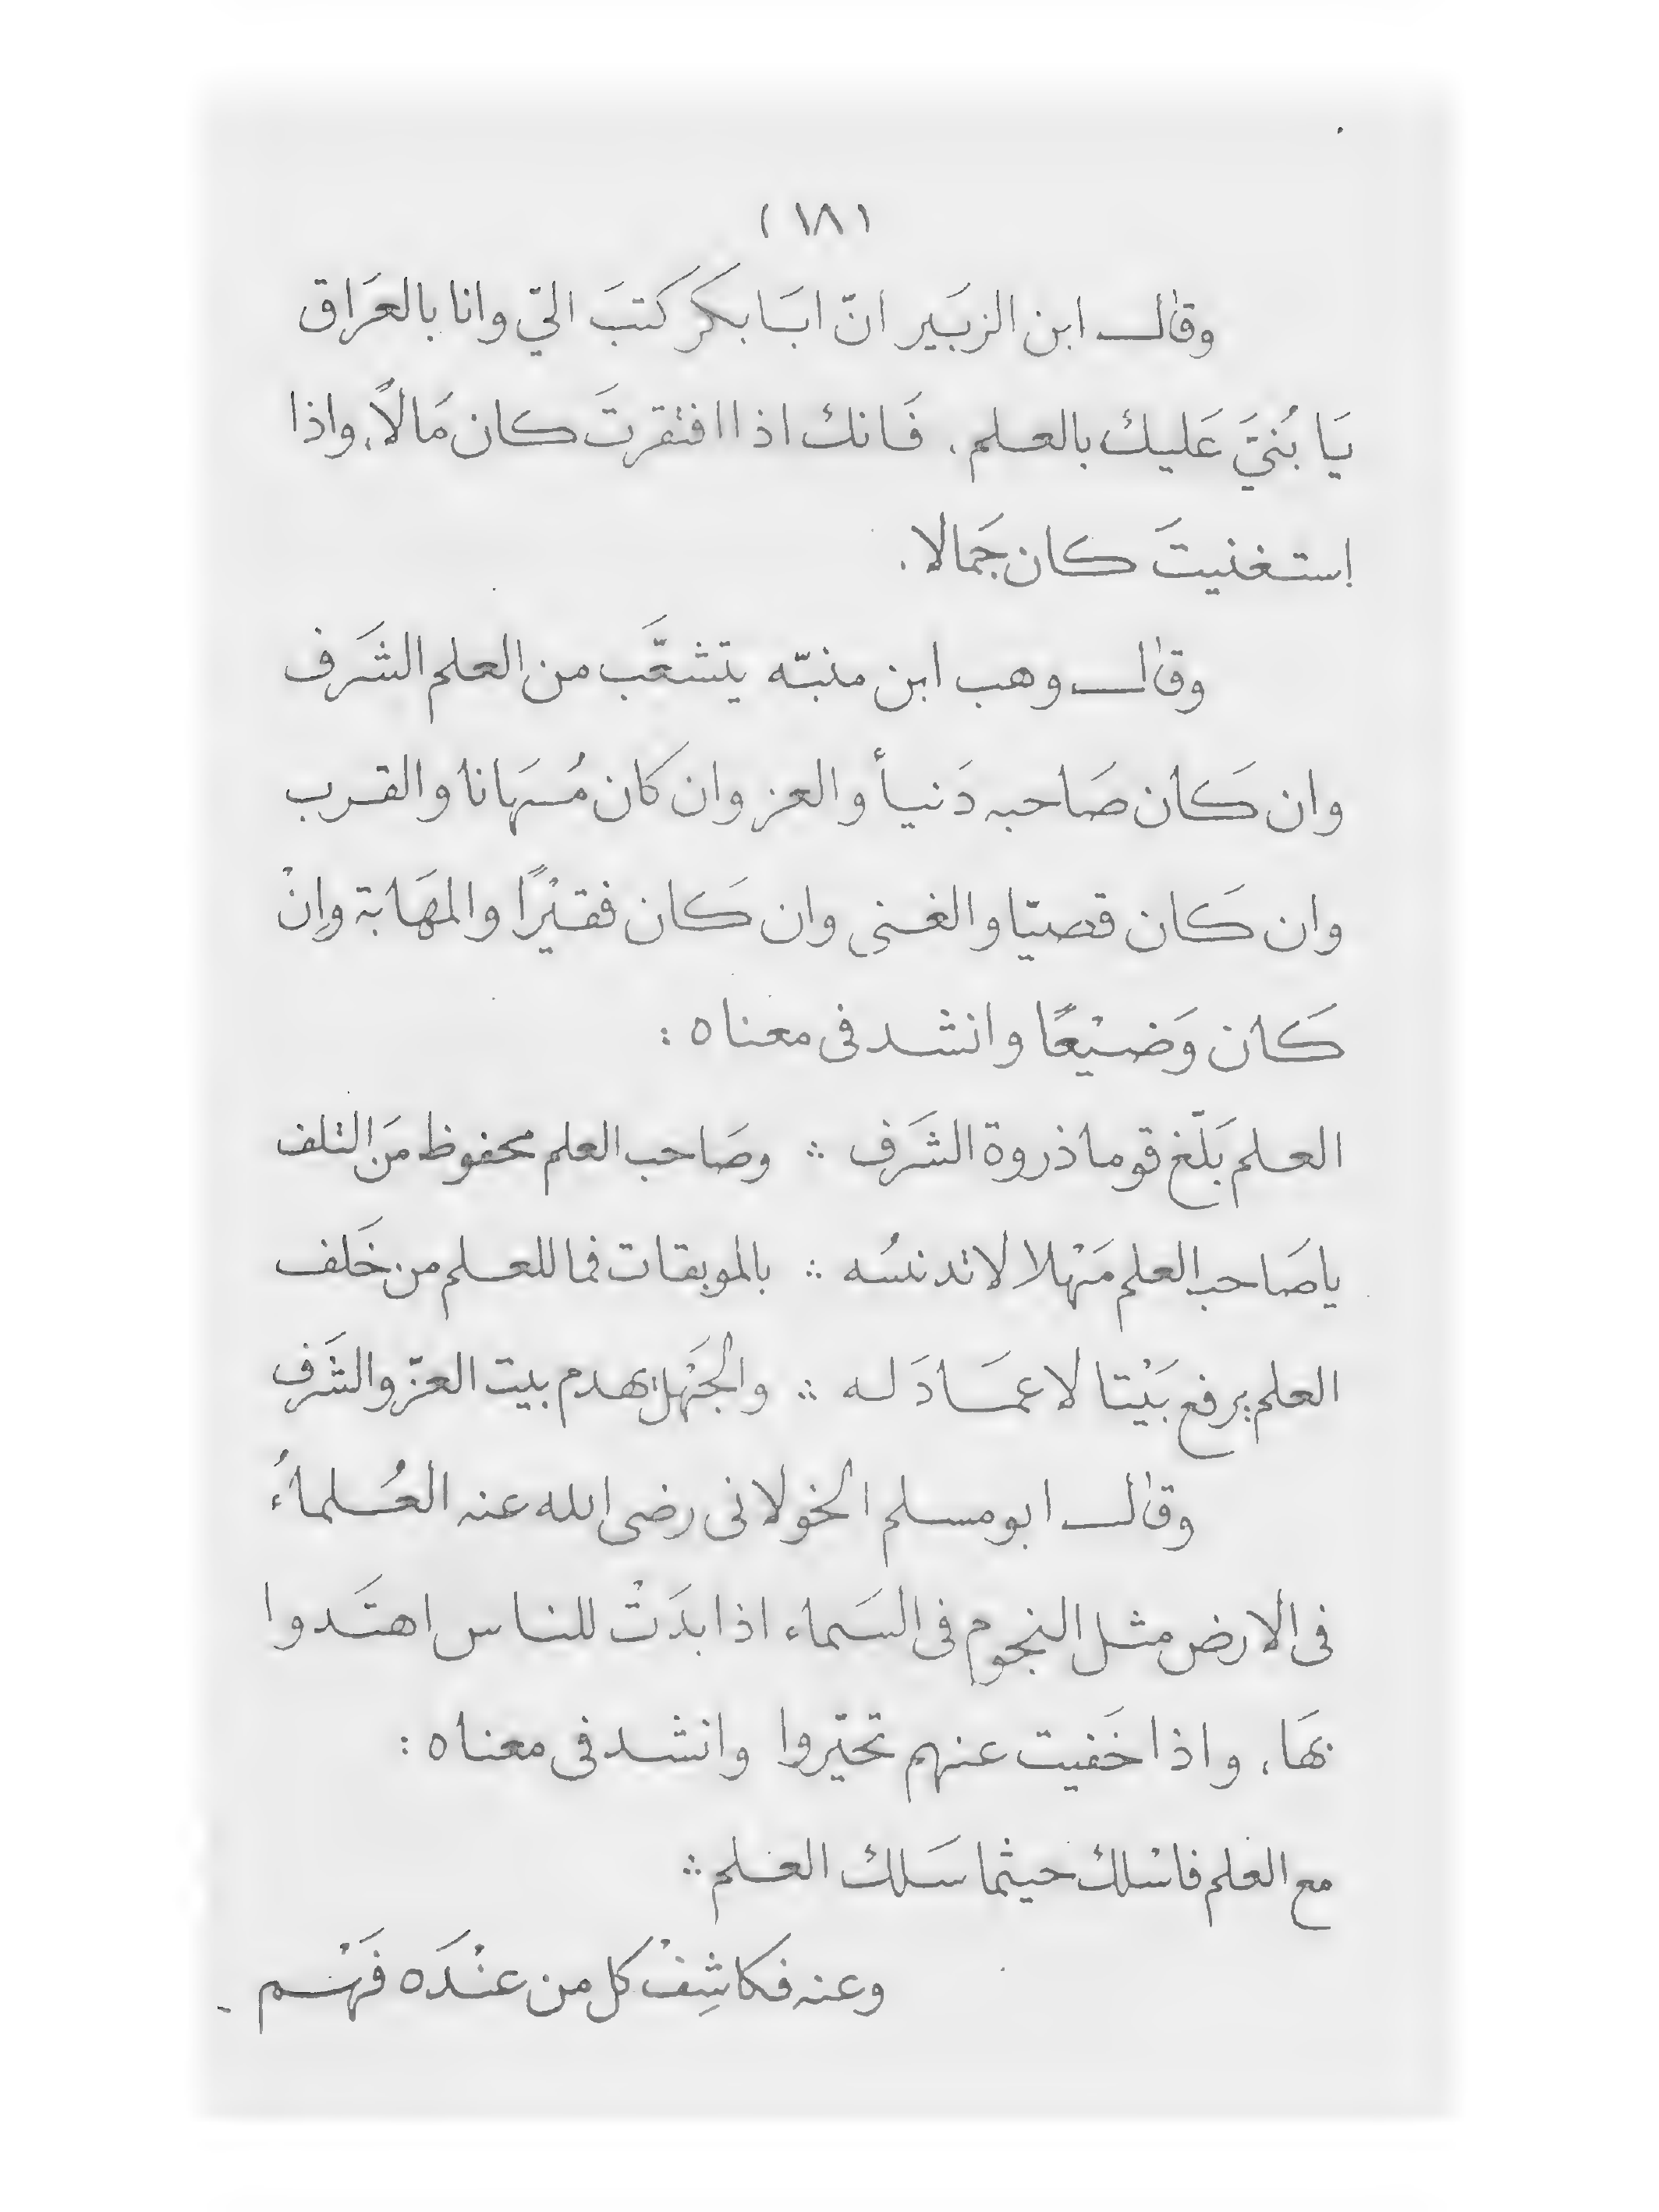 ( ١٨ )
وقال ابن الزبَير انّ ابَا بكر كتبَ اليّ وانا بالعَراق
يَا بُنيَّ عَليك بالعلم. فَانك اذا افتقرتَ كان مَالًا، واذا
استغنيتَ كان جَمالا.
وقال وهب ابن منبّه يتشعَّب من العلم الشَرف
وان كَان صَاحبه دَنيأ والعز وان كان مُهَانا والقرب
وان كَان قصيّا والغنى وان كَان فقيْرًا والمهَابة وإنْ
كَان وَضيْعًا وانشد فى معناه :
العلم بَلّغ قوما ذروة الشَرف ∴ وصَاحب العلم محفوظ مَن التلف
يا صَاحب العلم مَهْلا لا تدنسُه ∴ بالموبقات فما للعلم من خَلف
العلم يرفع بَيْتا لا عمَادَ له ∴ والجَهْل يهدم بيت العزّ والشَرف
وقال ابو مسلم الخولانى رضى الله عنه العُلماءُ
فى الارض مثل النجوم فى السَماء اذا بدَتْ للناس اهتَدوا
بهَا، واذا خَفيت عنهم تحيّروا وانشد فى معناه :
مع العلم فاسْلك حيثما سَلك العلم ∴
وعنه فكاشِفْ كل من عنْدَه فَهْم -